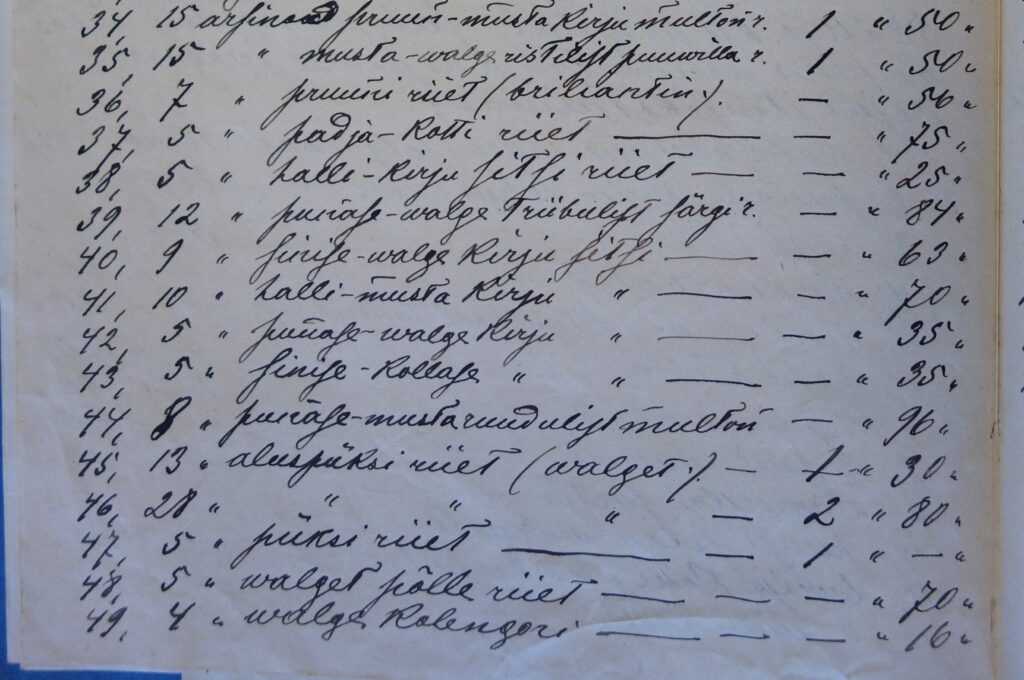 34, 15 arsinaad pruun-musta kirju multon r. 1 " 50 "
35, 15 " musta-walge ristilist puuwilla r. 1 " 50 "
36, 7 " pruuni riiet (briliantin). — " 56 "
37, 5 " padja-kotti riiet — " 75 "
38, 5 " halli-kirju sitsi riiet — — " 25 "
39, 12 " punase-walge triibulist särgi r. — " 84 "
40, 9 " sinise-walge kirju sitsi — — " 63 "
41, 10 " halli-musta kirju " — — " 70 "
42, 5 " punase-walge kirju " — — " 35 "
43, 5 " sinise-kollase " " — — " 35 "
44, 8 " punase-musta ruudulist multon — " 96 "
45, 13 " aluspüksi riiet (walget). — 1 " 30 "
46, 28 " " " " — 2 " 80 "
47, 5 " püksi riiet — — 1 " — "
48, 5 " walget põlle riiet — — — " 70 "
49, 4 " walge kolengori — — — " 16 "